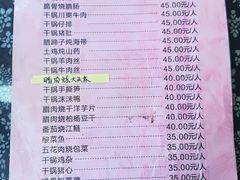 脆骨烧腊肠 45.00元/人
干锅川爽牛肉 45.00元/人
干锅仔排 45.00元/人
干锅猪肚 45.00元/人
腊蹄子炖海带 45.00元/人
土鸡炖山药 45.00元/人
干锅羊肉丝 45.00元/人
干锅牛肉丝 45.00元/人
40.00元/人
干锅手撕笋 40.00元/人
干锅沫沫鸭 40.00元/人
腊肉烧干洋芋片 40.00元/人
腊肉烧柏杨豆干 40.00元/人
番茄烧江鲢 40.00元/人
酸菜鱼 35.00元/人
五花肉烧包菜 35.00元/人
干锅鸡杂 35.00元/人
干锅猪心 35.00元/人
35.00元/人